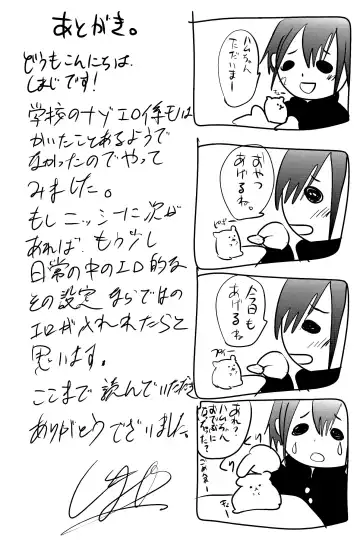 あとがき。
どうもこんにちは、
しまじです!
学校のナゾエロ係も
かいたことあるようで
なかったのでやって
みました。
もしニッシーに次が
あれば、もう少し
日常の中のエロ的な
その設定ならではの
エロが入れれたらと
思います。
ここまで読んでいただき
ありがとうございました。
ハムちゃん
ただいまー
おやつ
あげるね。
今日も
あげるね
あれっ
ハムちゃん
おデブに
なっちゃった?